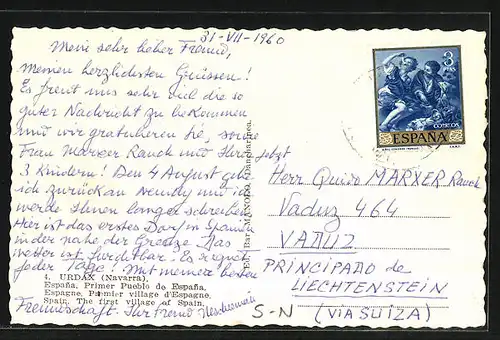 31-VII-1960
Mein sehr lieber Freund,
meinen herzlichsten Grüssen!
Es freut uns sehr viel die so
guter Nachricht zu bekommen
und wir gratulieren Sie,
Frau Marxer Rauch und Ihrer jetzt
3 Kindern! Den 4 August gehe
ich zurück an und ich
werde Ihnen langer schreiben
Hier ist das erstes Dorf in Spanien
in der nahe der Grenze. Das
wetter ist furchtbar. Es regnet
jeder Tage! Mit meinen besten
4. URDAX (Navarra).
España, Primer Pueblo de España.
Espagne, Premier village d'Espagne.
Spain, The first village of Spain.
Freundschaft. Ihr Freund
Ed. Bar MANOLO, Dancharinea
3 PTAS
CORREOS
ESPAÑA
Herr Guido MARXER Rauch
Vaduz 464
VADUZ
PRINCIPADO de
LIECHTENSTEIN
S-N (VIA SUIZA)